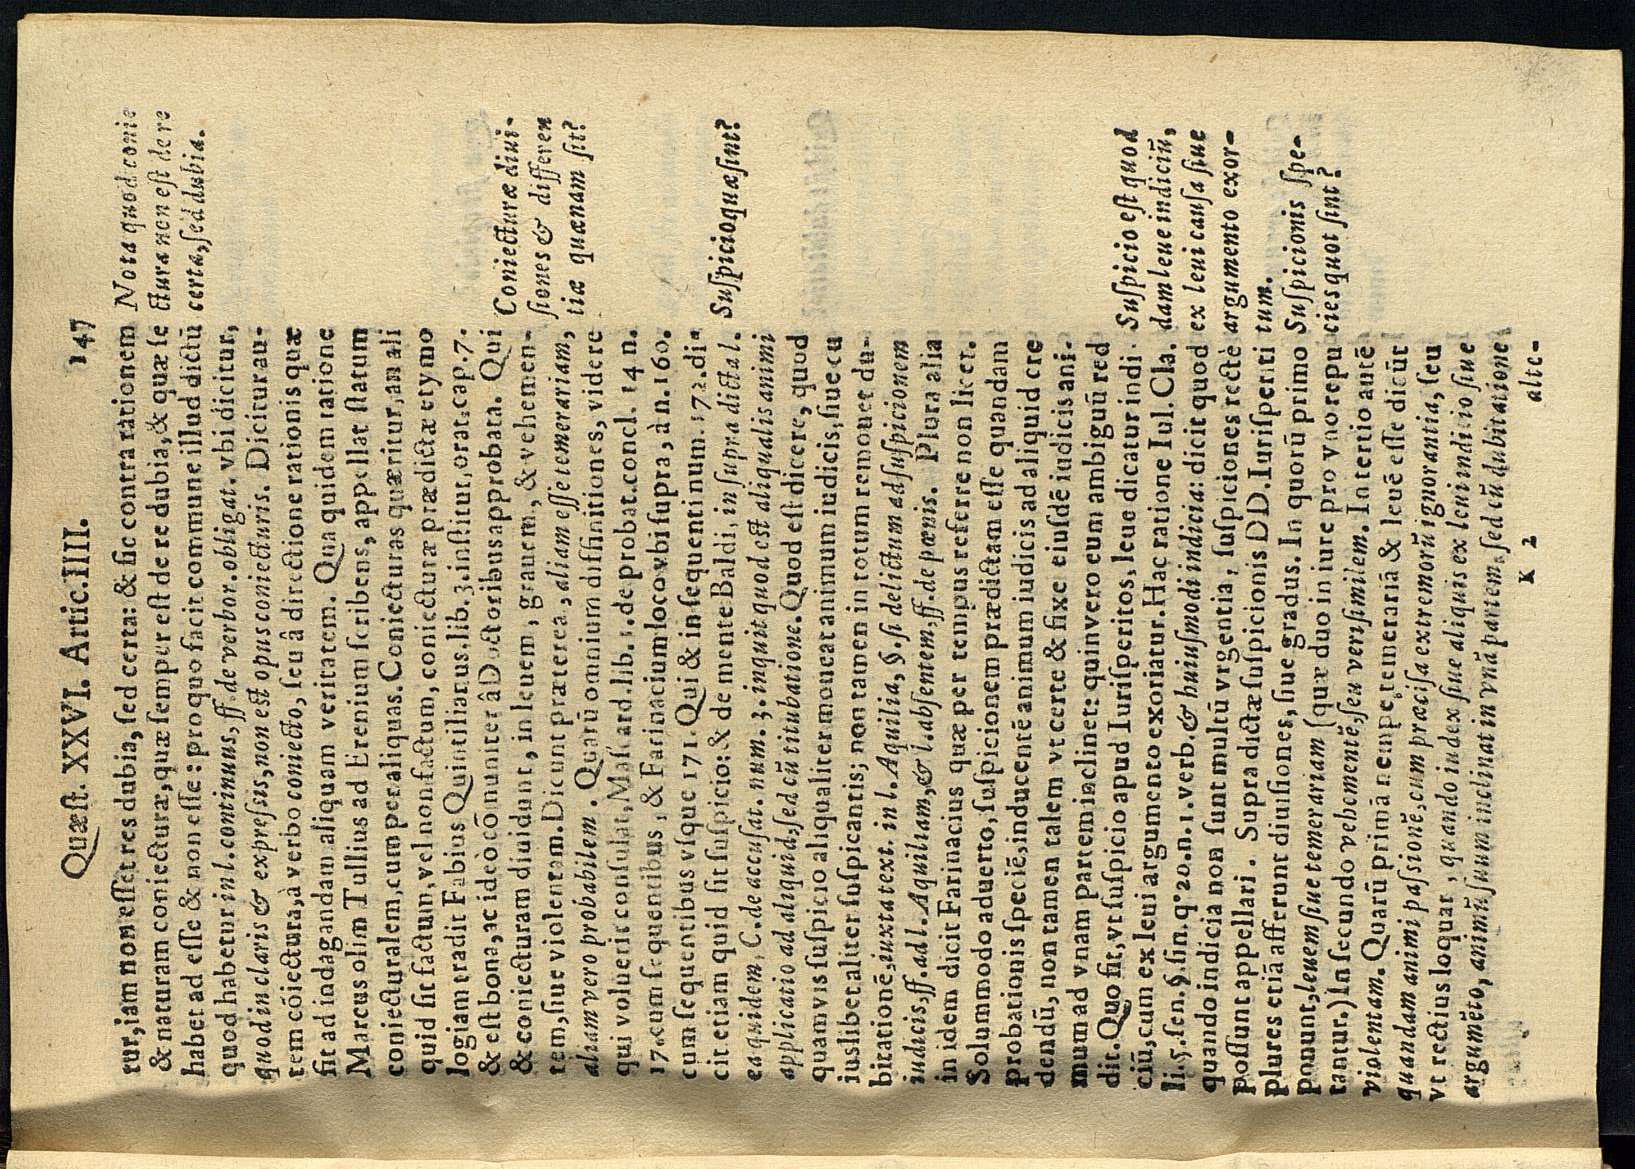 Quæſt. XXVI. Artic.IIII. 147
tur,iam non eſſet res dubia, ſed certa: & ſic contra rationem
& naturam coniecturæ, quæ ſemper eſt de re dubia, & quæ ſe
habet ad eſſe & non eſſe: pro quo facit commune illud dictū
quod habetur in l. continuus, ff. de verbor. obligat. vbi dicitur,
quod in claris & expreſsis, non eſt opus coniecturis. Dicitur au-
tem cōiectura, à verbo coniecto, ſeu â directione rationis quæ
fit ad indagandam aliquam veritatem. Qua quidem ratione
Marcus olim Tullius ad Erenium ſcribens, appellat ſtatum
coniecturalem, cum per aliquas. Coniecturas quæritur, an ali
quid ſit factum, vel non factum, coniecturæ prædictæ etymo
logiam tradit Fabius Quintilianus, lib. 3. inſtitut, orat. cap. 7.
& eſt bona, ac ideo cōmuniter â Doctoribus approbata. Qui
& coniecturam diuidunt, in leuem, grauem, & vehemen-
tem, ſiue violentam. Dicunt præterea, aliam eſſe temerariam,
aliam vero probabilem. Quarū omnium diffinitiones, videre
qui voluerit conſulat, Maſcard. lib. 1. de probat. concl. 14 n.
17. cum ſequentibus, & Farinacium loco vbi ſupra, à n. 160.
cum ſequentibus vſque 171. Qui & in ſequenti num. 172. di-
cit etiam quid ſit ſuſpicio: & de mente Baldi, in ſupra dicta l.
ea quidem, C. de accuſat. num. 3. inquit quod eſt aliqualis animi
applicatio ad aliquid, ſed cū titubatione. Quod eſt dicere, quod
quamvis ſuſpicio aliqualiter moueat animum iudicis, ſiue cu
iuslibet aliter ſuſpicantis; non tamen in totum remouet du-
bitationē, iuxta text. in l. Aquilia, §. ſi delictum ad ſuſpicionem
iudicis, ff. ad l. Aquiliam, & l. abſentem, ff. de pœnis. Plura alia
in idem dicit Farinacius quæ per tempus referre non licet.
Solummodo aduerto, ſuſpicionem prædictam eſſe quandam
probationis ſpeciē, inducentē animum iudicis ad aliquid cre
dendū, non tamen talem vt certe & fixe eiuſdē iudicis ani-
mum ad vnam partem inclinet: quin vero eum ambiguū red
dit. Quo fit, vt ſuſpicio apud Iuriſperitos, leue dicatur indi-
ciū, cum ex leui argumento exoriatur. Hac ratione Iul. Cla.
li. 5. ſen. §. fin. q. 20. n. 1. verb. & huiuſmodi indicia: dicit quod
quando indicia non ſunt multū vrgentia, ſuſpiciones recte
poſſunt appellari. Supra dictæ ſuſpicionis DD. Iuriſperiti
plures etiā afferunt diuiſiones, ſiue gradus. In quorū primo
ponunt, leuem ſiue temerariam (quæ duo in iure pro vno repu
tantur.) In ſecundo vehementē, ſeu veriſimilem. In tertio autē
violentam. Quarū primā nempe temerariā & leuē eſſe dicūt
quandam animi paſsionē, cum præciſa extremorū ignorantia, ſeu
vt rectius loquar, quando iudex ſiue aliquis ex leui indicio ſiue
argumēto, animū ſuum inclinat in vnā partem, ſed cū dubitatione
K 2 alte-
Nota quod conie
ctura non eſt de re
certa, ſed dubia.
Coniecturæ diui-
ſiones & differen
tiæ quænam ſit?
Suſpicio quæ ſint?
Suſpicio eſt quod
dam leue indiciū,
ex leui cauſa ſiue
argumento exor-
tum.
Suſpicionis ſpe-
cies quot ſint?